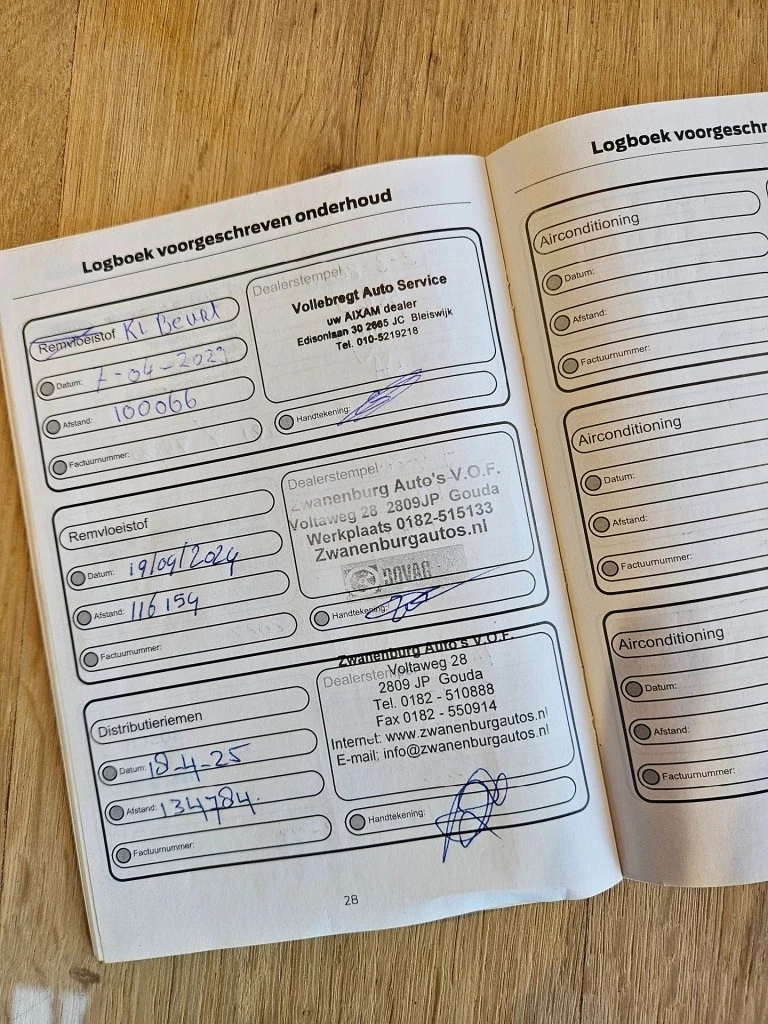 Logboek voorgeschreven onderhoud
Remvloeistof Kl Beurt
Datum: 7-04-2023
Afstand: 100066
Factuurnummer:
Dealerstempel
Vollebregt Auto Service
uw AIXAM dealer
Edisonlaan 30 2665 JC Bleiswijk
Tel. 010-5219218
Handtekening:
Remvloeistof
Datum: 19/09/2024
Afstand: 116154
Factuurnummer:
Dealerstempel
Zwanenburg Auto's V.O.F.
Voltaweg 28 2809JP Gouda
Werkplaats 0182-515133
Zwanenburgautos.nl
BOVAG
Handtekening:
Distributieriemen
Datum: 18-4-25
Afstand: 134784.
Factuurnummer:
Zwanenburg Auto's V.O.F.
Dealerstempel
Voltaweg 28
2809 JP Gouda
Tel. 0182 - 510888
Fax 0182 - 550914
Internet: www.zwanenburgautos.nl
E-mail: info@zwanenburgautos.nl
Handtekening:
28
Logboek voorgeschr
Airconditioning
Datum:
Afstand:
Factuurnummer:
Airconditioning
Datum:
Afstand:
Factuurnummer:
Airconditioning
Datum:
Afstand:
Factuurnummer: